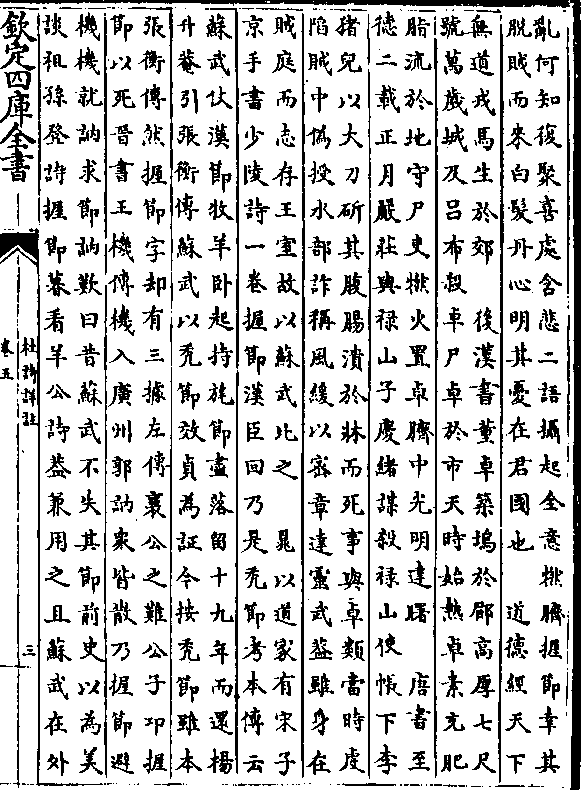 亂何知復聚喜處含悲二語攝起全意燃臍握節幸其
脱賊而來白髪丹心明其憂在君國也　道德經天下
無道戎馬生於郊　後漢書董卓築塢於郿高厚七尺
號萬歲城及吕布殺卓尸卓於市天時始熱卓素充肥
脂流於地守尸吏燃火置卓臍中光明達曙　唐書至
德二載正月嚴莊與禄山子慶緒謀殺禄山使帳下李
猪兒以大刀斫其腹腸潰於牀而死事與卓類當時䖍
陷賊中偽授水部詐稱風緩以宻章達靈武葢雖身在
賊庭而志存王室故以蘇武比之　晁以道家有宋子
京手書少陵詩一卷握節漢臣回乃是秃節考本傳云
蘇武仗漢節牧羊卧起持旄節盡落留十九年而還楊
升菴引張衡傳蘇武以秃節效貞為証今按秃節雖本
張衡傳然握節字却有三據左傳襄公之難公子卭握
節以死晉書王機傳機入廣州郭訥衆皆散乃握節避
機機就訥求節訥歎曰昔蘇武不失其節前史以為美
談祖孫登詩握節暮看羊公詩葢兼用之且蘇武在外
欽定四庫全書
杜詩詳註
卷五
三